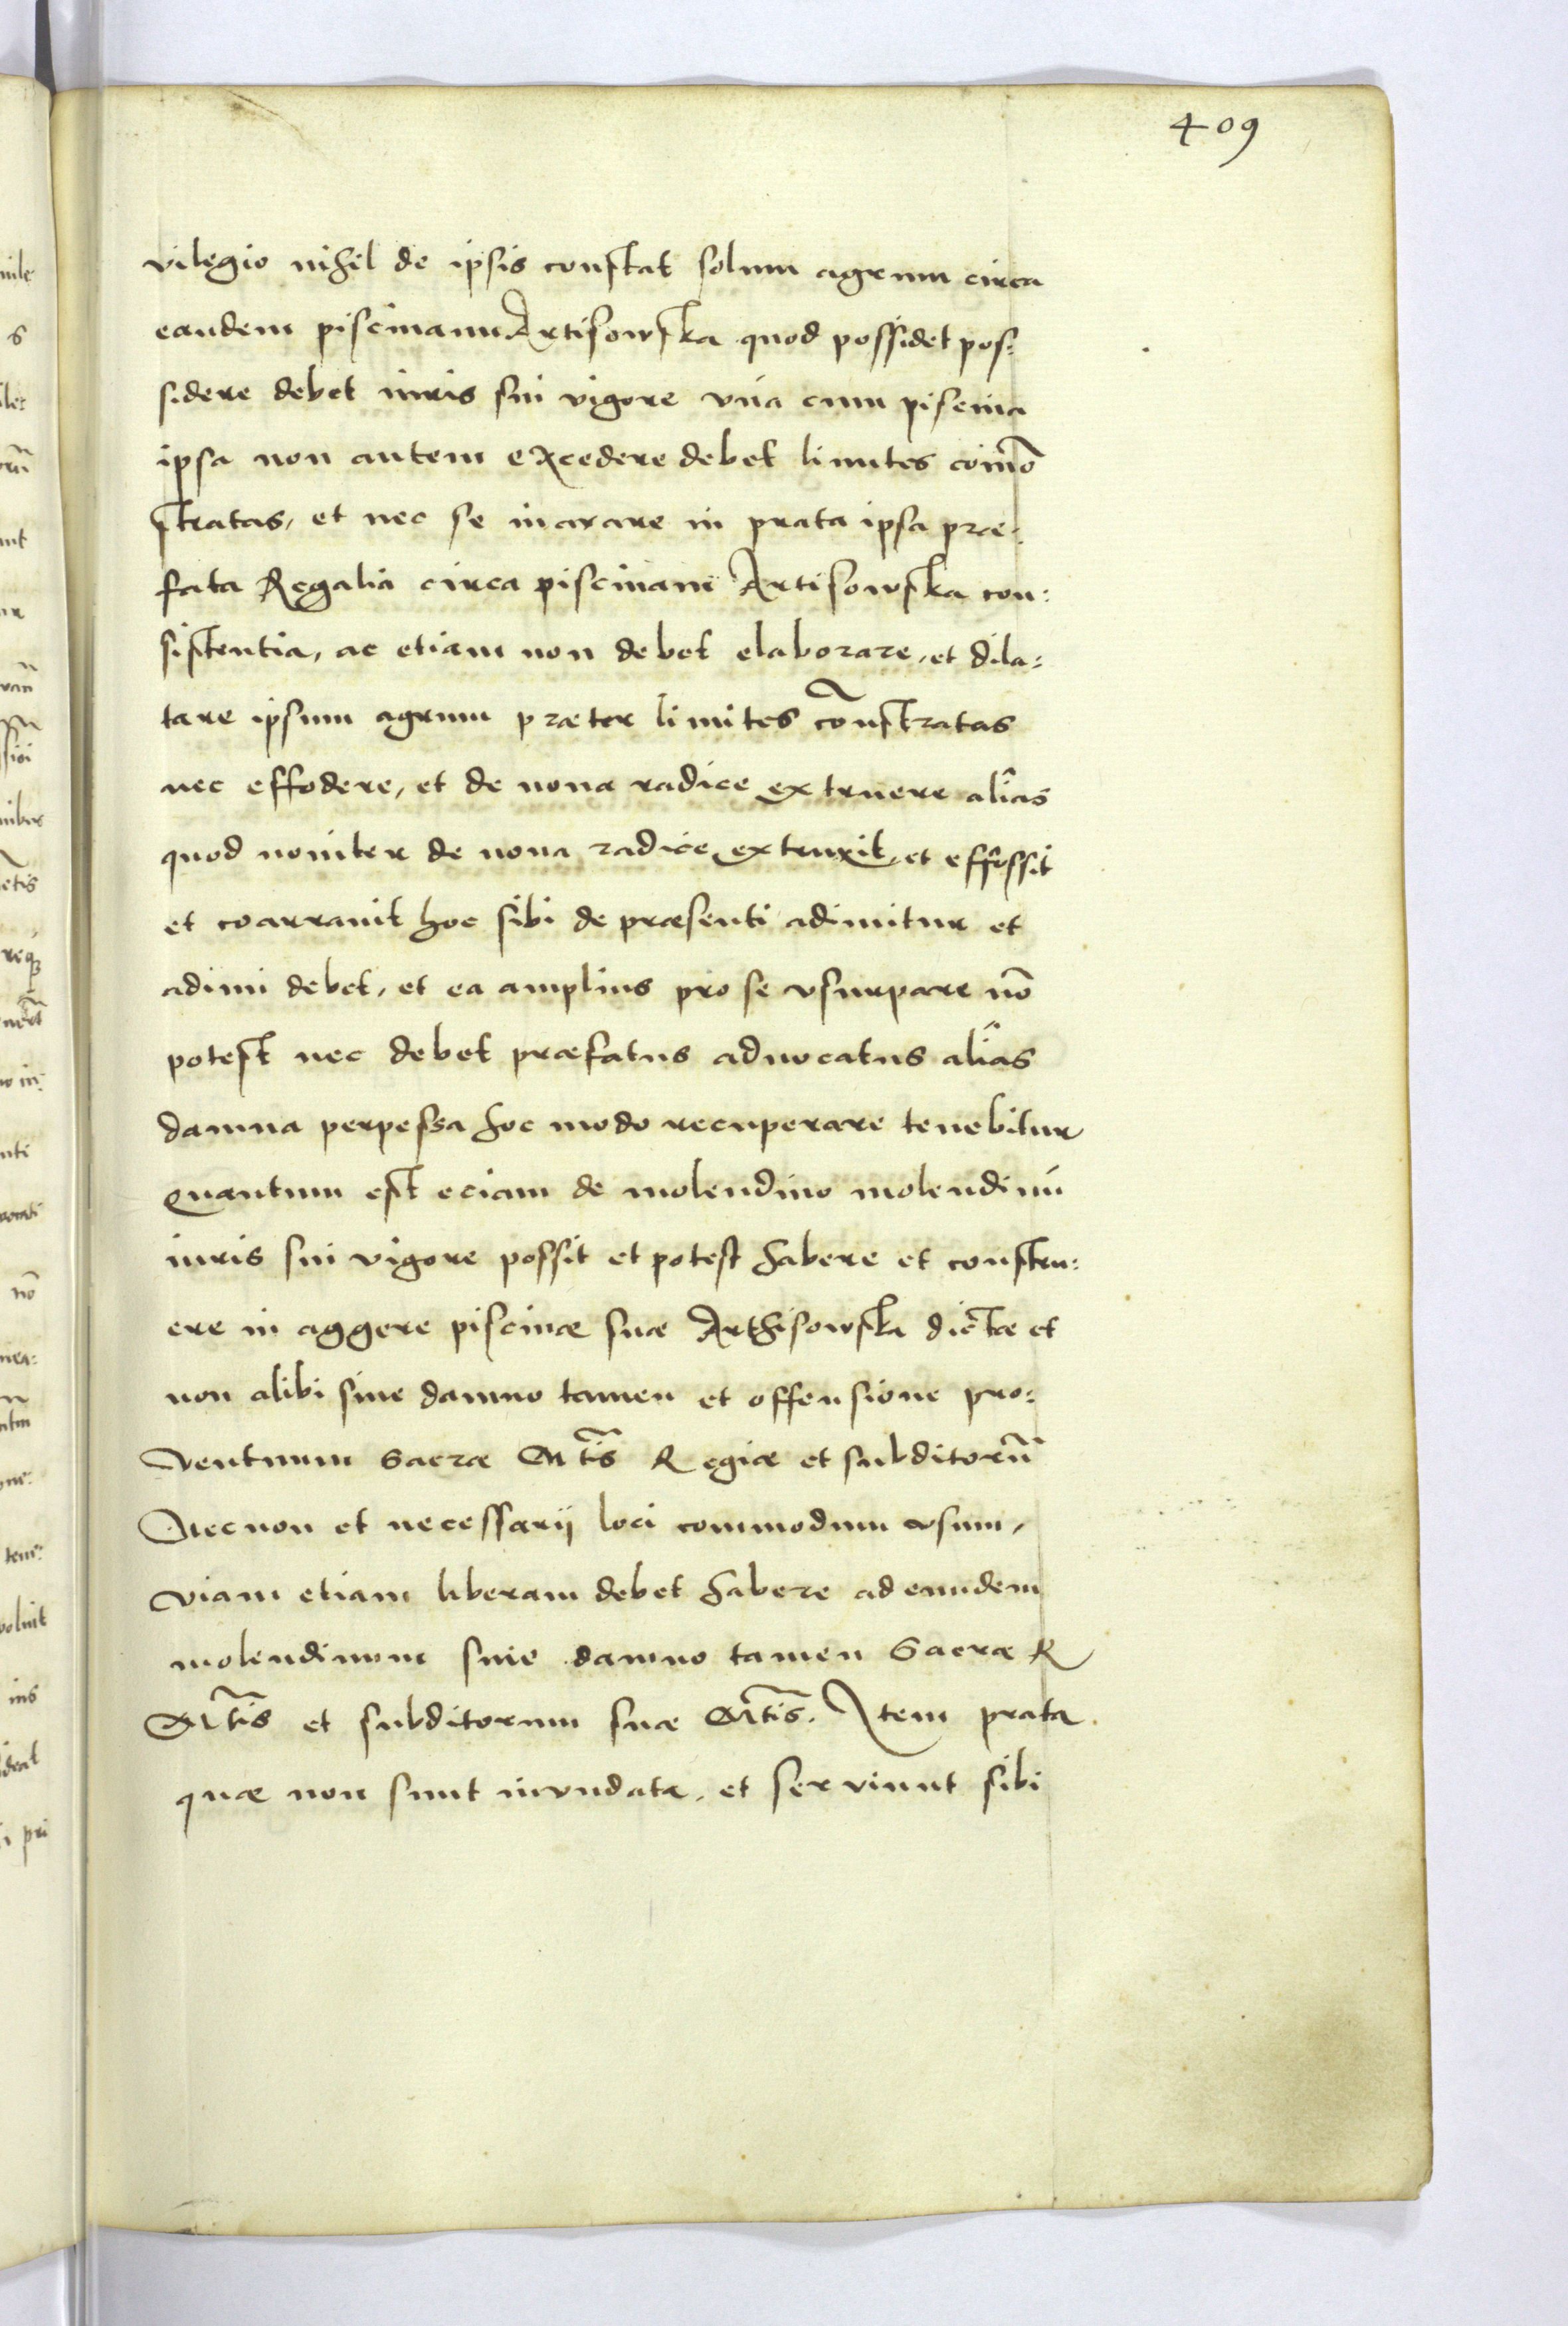 409
vilegio nihil de ipsis constat solum agrum circa
eandem piscinam Artisowska quod possidet pos:
sidere debet iuris sui vigore vna cum piscina
ipsa non autem excedere debet limites com̄o
stratas, et nec se inarare in prata ipsa præ:
fata Regalia circa piscinam Artisowska con:
sistentia, ac etiam non debet elaborare, et dila:
tare ipsum agrum præter limites cōnstratas
nec effodere, et de noua radice extruere aliâs
quod nouiter de noua radice extruxit, et effossit
et coarrauit hoc sibi de præsenti adimitur et
adimi debet, et ea amplius pro se vsurpare nō
potest nec debet præfatus aduocatus aliâs
damna perpessa hoc modo recuperare tenebitur
Quantum est eciam de molendino molendinū
iuris sui vigore possit et potest habere et constru:
ere in aggere piscinæ suæ Arthisowska dictæ et
non alibi sine damno tamen et offensione pro:
ventuum Sacræ Mt̄is Regiæ et subditorū
Necnon et necessarij loci commodum vsum,
viam etiam liberam debet habere ad eundem
molendinum sine damno tamen Sacræ R
Mt̄is et subditorum suæ Mt̄is. Item prata
quæ non sunt invndata, et serviunt sibi